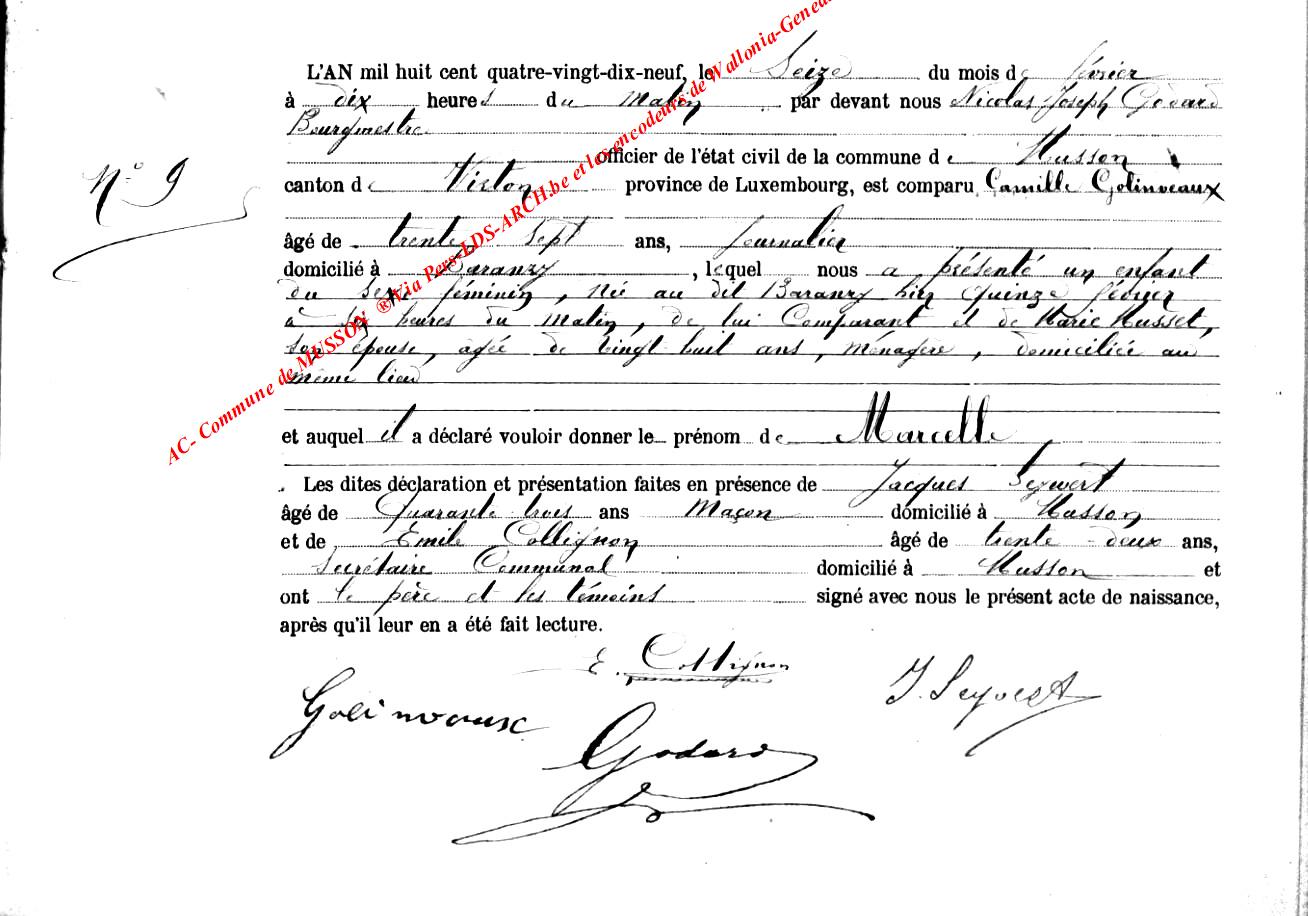 L'AN mil huit cent quatre-vingt-dix-neuf, le Seize du mois de février
à dix heures du matin par devant nous Nicolas Joseph Godard
Bourgmestre
officier de l'état civil de la commune de Musson
N° 9
canton de Virton province de Luxembourg, est comparu Camille Golinveaux
âgé de trente sept ans, journalier
domicilié à Baranzy, lequel nous a présenté un enfant
du sexe féminin, née au dit Baranzy hier quinze février
à heures du matin, de lui Comparant et de Marie Musset,
son épouse, agée de vingt huit ans, ménagère, domiciliée au
même lieu
et auquel il a déclaré vouloir donner le prénom de Marcelle,
Les dites déclaration et présentation faites en présence de Jacques Seywert
âgé de Quarante trois ans Maçon domicilié à Musson
et de Emile Collignon âgé de trente-deux ans,
Secrétaire Communal domicilié à Musson et
ont le père et les témoins signé avec nous le présent acte de naissance,
après qu'il leur en a été fait lecture.
E. Collignon
J. Seywert
Golinveaux
Godard
AC- Commune de MUSSON ® Via Pers-LDS-ARCH.be et les encodeurs de Wallonia-Geneal